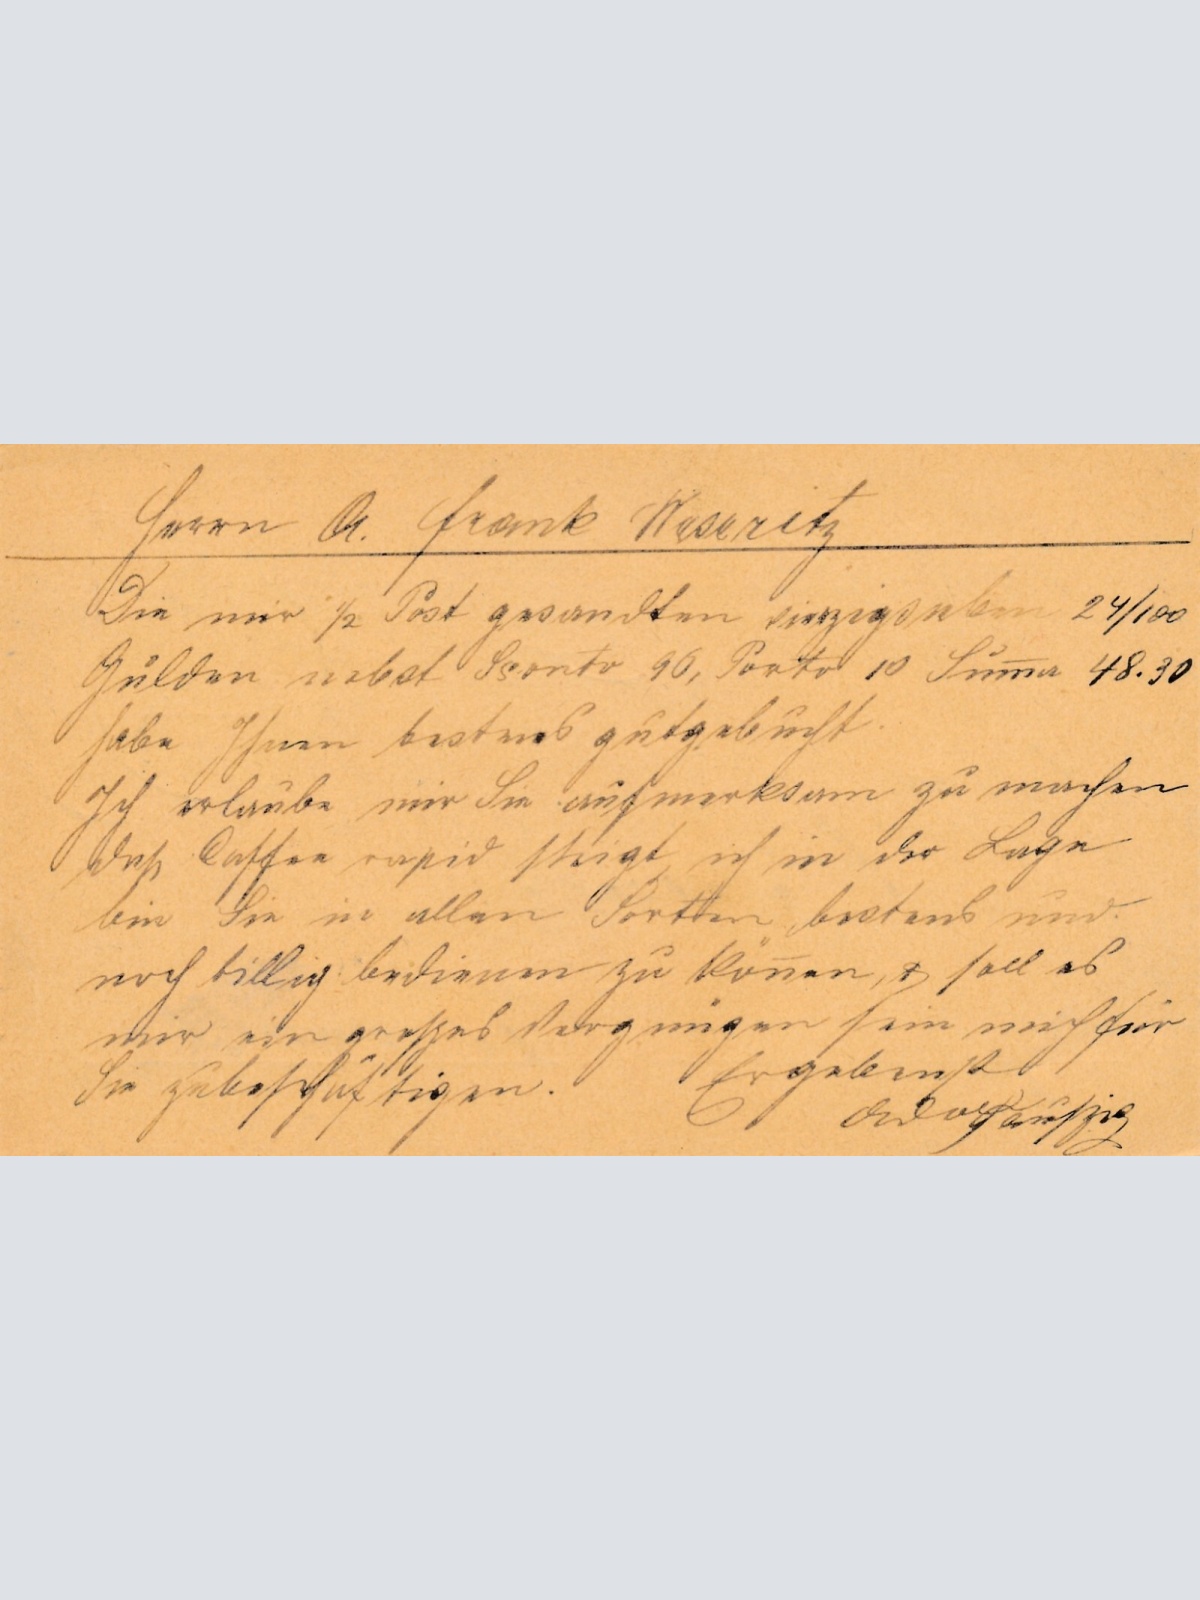 Herrn A. Frank Weseritz
Die mir ½ Post gesandten vierzigsieben 24/100
Gulden nebst Sconto 96, Porto 10 Suma 48.30
habe Ihnen bestens gutgebucht.
Ich erlaube mir Sie aufmerksam zu machen
daß Caffee rapid steigt, ich in der Lage
bin Sie in allen Sortten bestens und
noch billig bedienen zu könen, & soll es
mir ein großes Vergnügen sein mich für
Sie zubeschäftigen. Ergebenst
Adolf